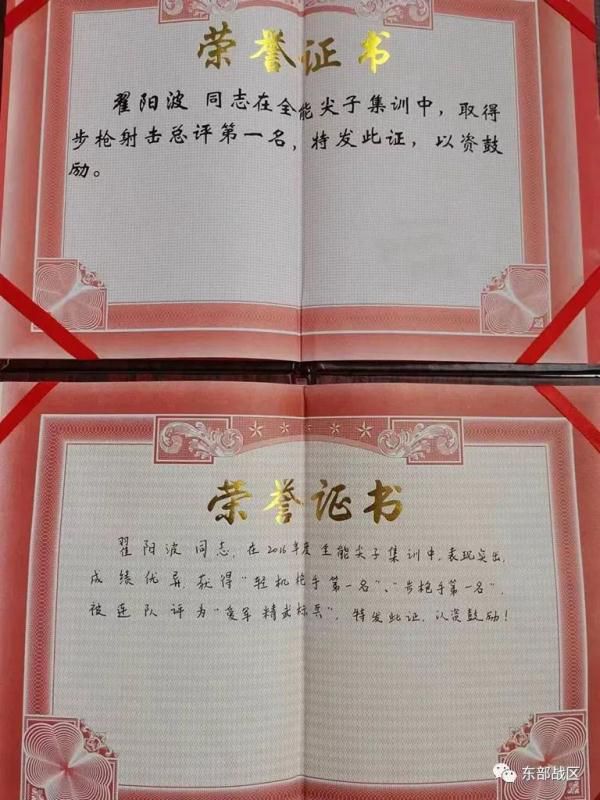 荣誉证书
翟阳波 同志在全能尖子集训中，取得
步枪射击总评第一名，特发此证，以资鼓
励。
荣誉证书
翟阳波 同志，在2016年度全能尖子集训中，表现突出，
成绩优异，获得“轻机枪手第一名”、“步枪手第一名”，
被连队评为“爱军精武标兵”，特发此证，以资鼓励！
东部战区